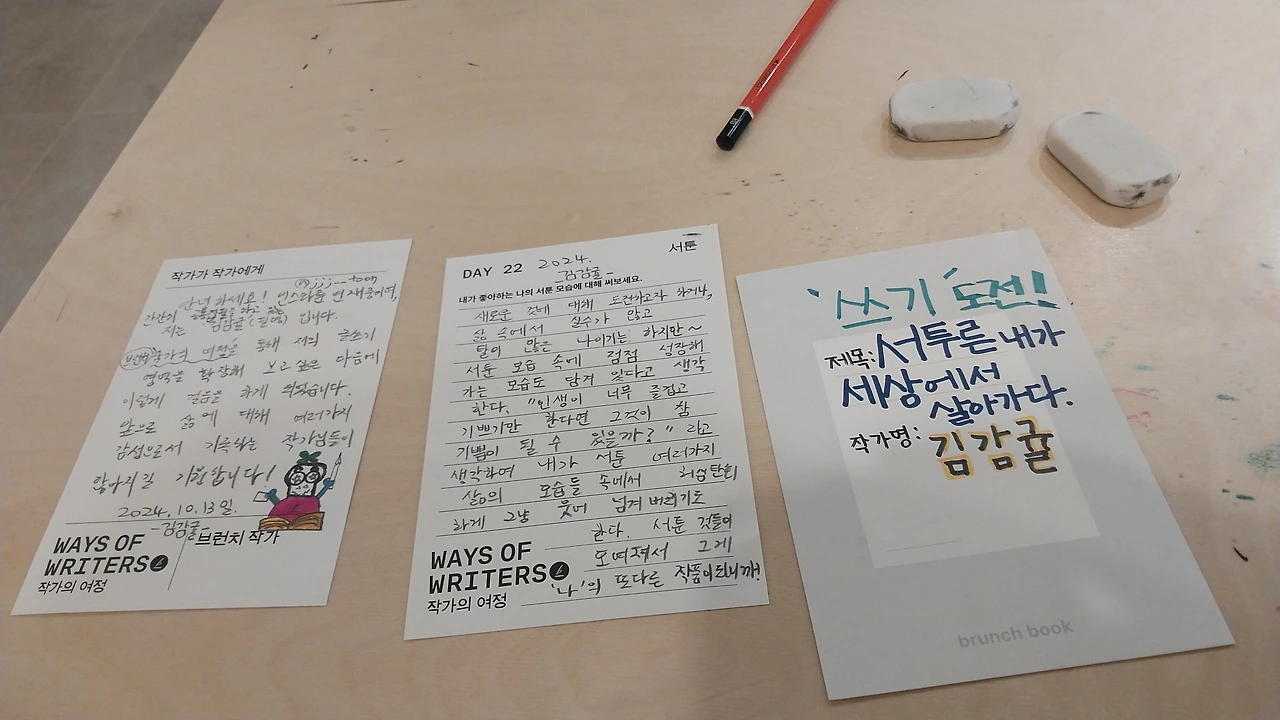 작가가 작가에게
@jjj--toon
안녕하세요! 인스타툰 연재중이며,
간간히
저는 김감귤(필명) 입니다.
브런치 작가의 여정을 통해 저의 글쓰기
영역을 확장해 보고 싶은 마음에
이렇게 걸음을 하게 되었습니다.
앞으로 삶에 대해 여러가지
감성으로서 기록하는 작가님들이
많아지길 기원합니다!
2024.10.13일.
-김감귤-
브런치 작가
WAYS OF
WRITERS
작가의 여정
서툰
DAY 22 2024.
김감귤-
내가 좋아하는 나의 서툰 모습에 대해 써보세요.
새로운 것에 대해 도전하고자 하거나,
삶 속에서 실수가 많고
덜이 많은 나이기는 하지만~
서툰 모습 속에 점점 성장해
가는 모습도 담겨 있다고 생각
한다. "인생이 너무 즐겁고
기쁘기만 한다면 그것이 참
기쁨이 될 수 있을까?" 라고
생각하여 내가 서툰 여러가지
삶의 모습들 속에서 허심탄회
하게 그냥 웃어 넘겨버리기도
한다. 서툰 것들이
모여져서 그게
'나'의 또다른 작품이되니까!
WAYS OF
WRITERS
작가의 여정
'쓰기' 도전!
제목: 서투른 내가
세상에서
살아가다.
작가명: 김감귤
brunch book